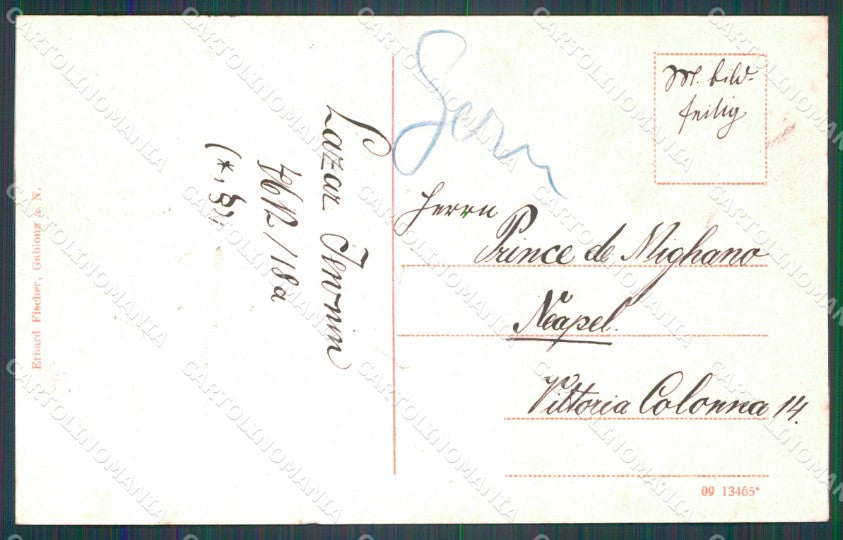 Erhard Fischer, Gablonz a. N.
Lazar
7612/18a
Herrn
Prince de Mighano
Neapel.
Vittoria Colonna 14.
09 13465*
CARTOLINOMANIA